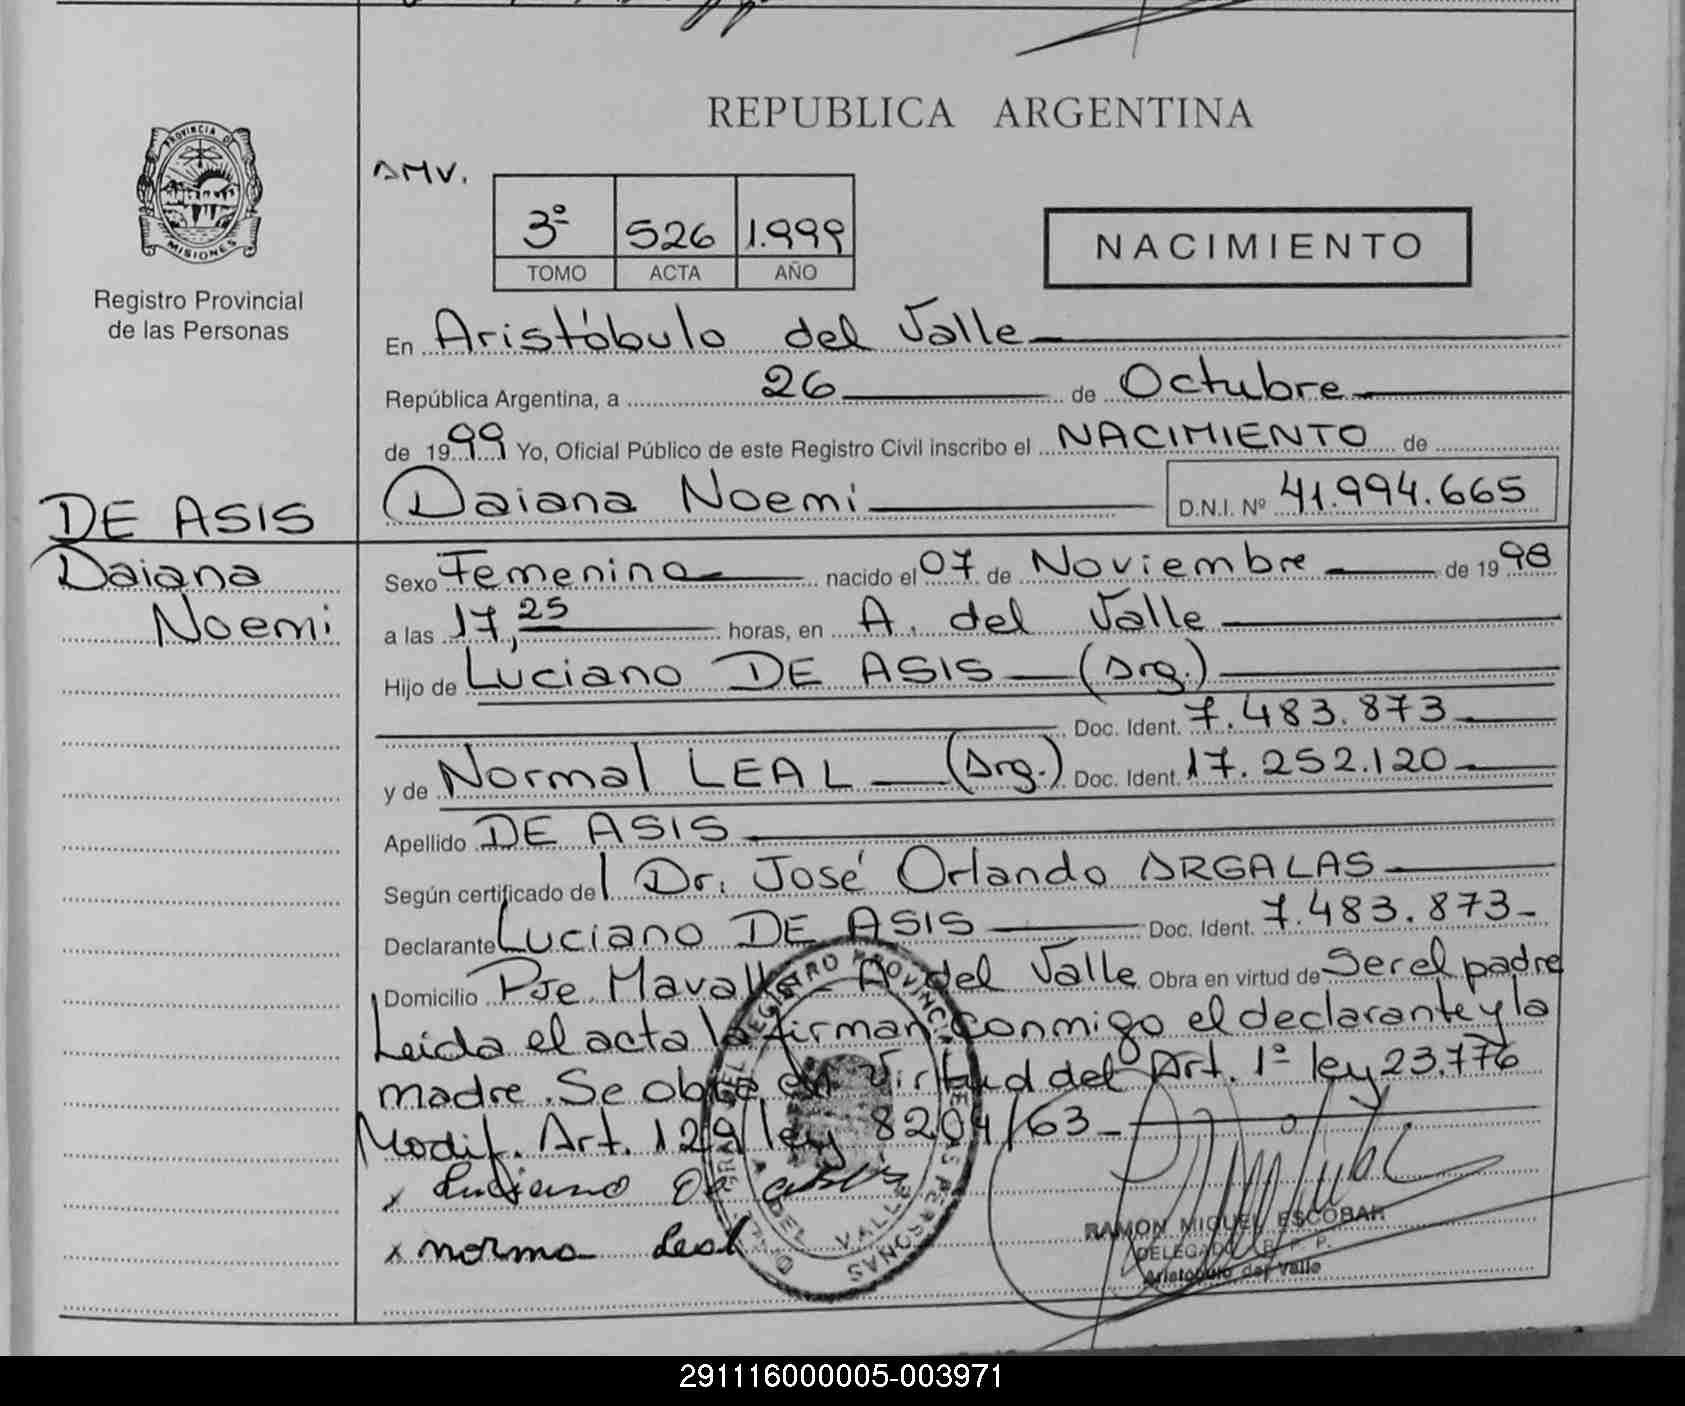 REPUBLICA ARGENTINA
PROVINCIA DE
MISIONES
Registro Provincial
de las Personas
AMV.
3º 526 1.999
TOMO ACTA AÑO
NACIMIENTO
En Aristóbulo del Valle
República Argentina, a 26 de Octubre
de 1999 Yo, Oficial Público de este Registro Civil inscribo el NACIMIENTO de
Daiana Noemi D.N.I. Nº 41.994.665
DE ASIS
Daiana
Noemi
Sexo Femenino nacido el 07 de Noviembre de 1998
a las 17,25 horas, en A. del Valle
Hijo de Luciano DE ASIS (Arg.)
Doc. Ident. 7.483.873
y de Normal LEAL (Arg.) Doc. Ident. 17.252.120
Apellido DE ASIS
Según certificado del Dr. José Orlando ARGALAS
Declarante Luciano DE ASIS Doc. Ident. 7.483.873
Domicilio Pje. Mavalle A. del Valle Obra en virtud de Ser el padre
Leida el acta la firman conmigo el declarante y la
madre. Se obra en Virtud del Art. 1º ley 23.776
Modif. Art. 129 ley 8204/63
x Luciano De Asis
x norma Leal
RAMON MIGUEL ESCOBAR
DELEGADO R. P. P.
Aristobulo del Valle
A. DEL VALLE
291116000005-003971